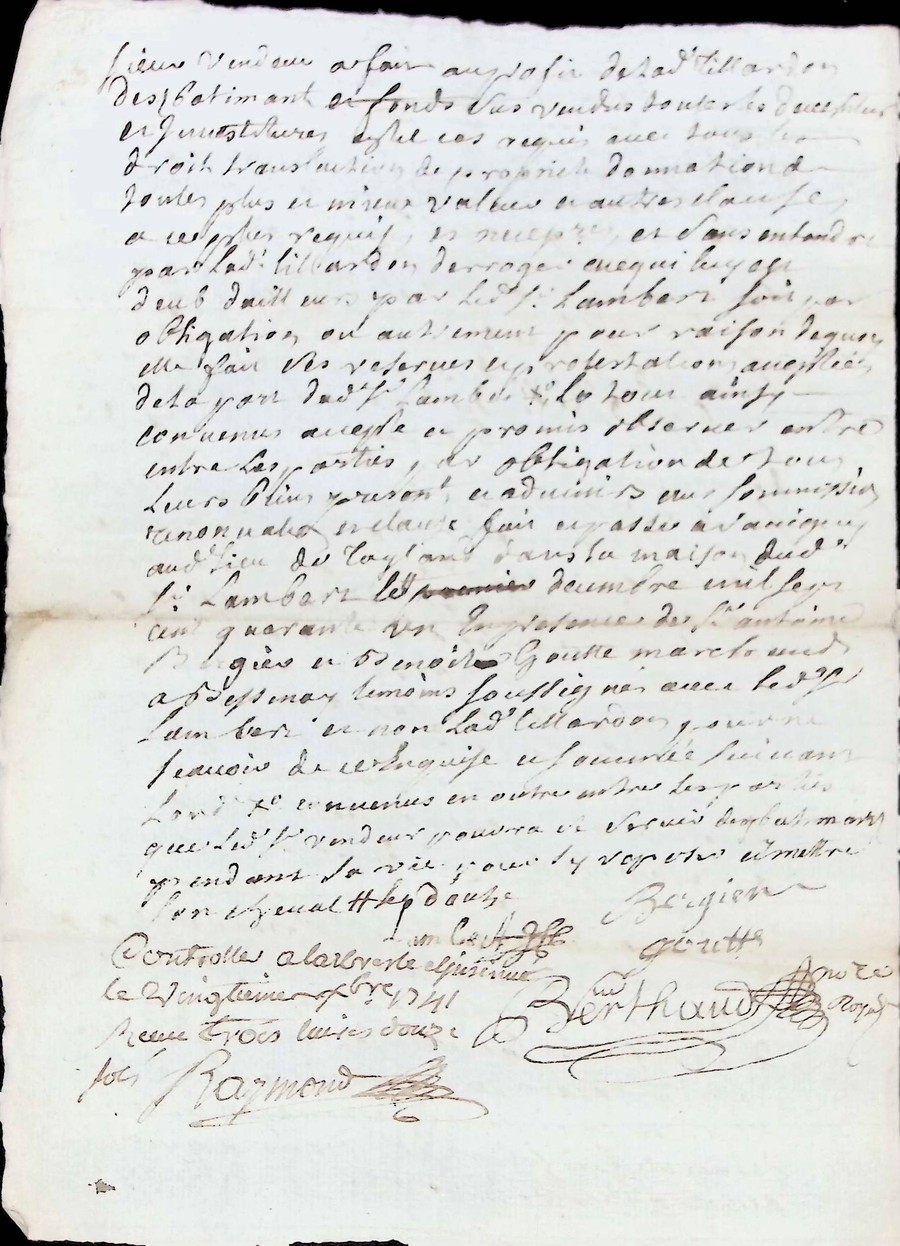 sieur vendeur a fair au profit de lad.e tillardon
desd batimant et fonds sus vendus toutes les
et Jnvestitures requis avec tous les
droit translation de propriete donnation de
toutes plus et mieux values et autres clause
a ce plus requis, et et sans entendre
par lad.e tillardon derroger a ce qui luy est
deub dailleurs par led.t S.r Lambert soit par
obligation ou autrement pour raison de quoy
elle fait ses reserves et protestations
de la part dud.t S.r Lambert Le tout ainsy
convenus accepté et promis observer entre
entre Les parties par obligation de tous
Leurs biens presents et advenirs aux soummission
renonciation et clause fait et passé a Savigny
aud.t lieu de dans la maison dud.t
S.r Lambert le decembre mil sept
cent quarante un En presence de S.r antoine
Bergier et Benoit Goutte marchands
a Bessenay temoins soussignés avec led.t S.r
Lambert et non Lad.e tillardon pour ne
scavoir de ce Enquise et sommée suivant
Lord. convenus en outre entre les parties
que led.t S.r vendeur poura se servir desd batimant
pendant sa vie pour sy reposer et mettre
son cheval
Lambert Bergier
goutte
Controlle a larbresle
le Vingtieme Xbre 1741
Receu trois livres douze
sols Raymond
Berthaud note
Royal